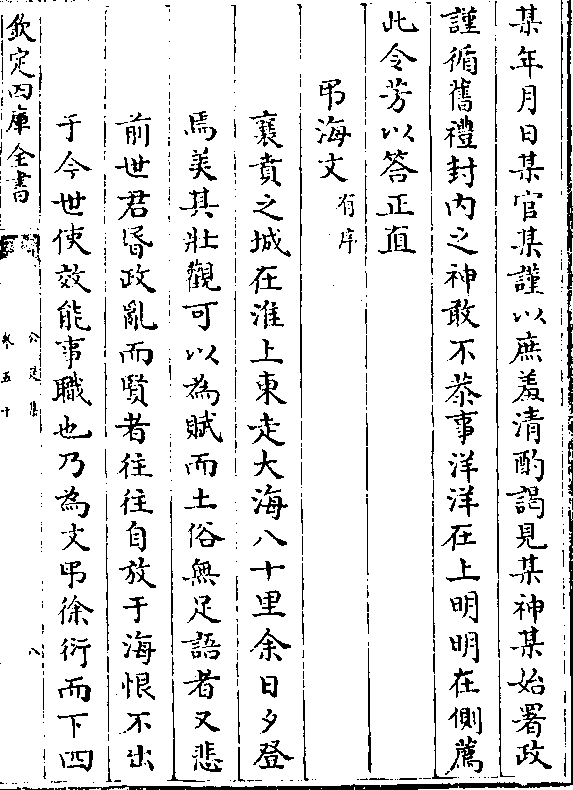 某年月日某官某謹以庶羞清酌謁見某神某始署政
謹循舊禮封内之神敢不恭事洋洋在上明明在側薦
此令芳以答正直
弔海文有序
襄賁之城在淮上東走大海八十里余日夕登
焉美其壯觀可以為賦而土俗無足語者又悲
前世君昏政亂而賢者往往自放于海恨不出
于今世使效能事職也乃為文弔徐衍而下四
欽定四庫全書
公是集
卷五十
八